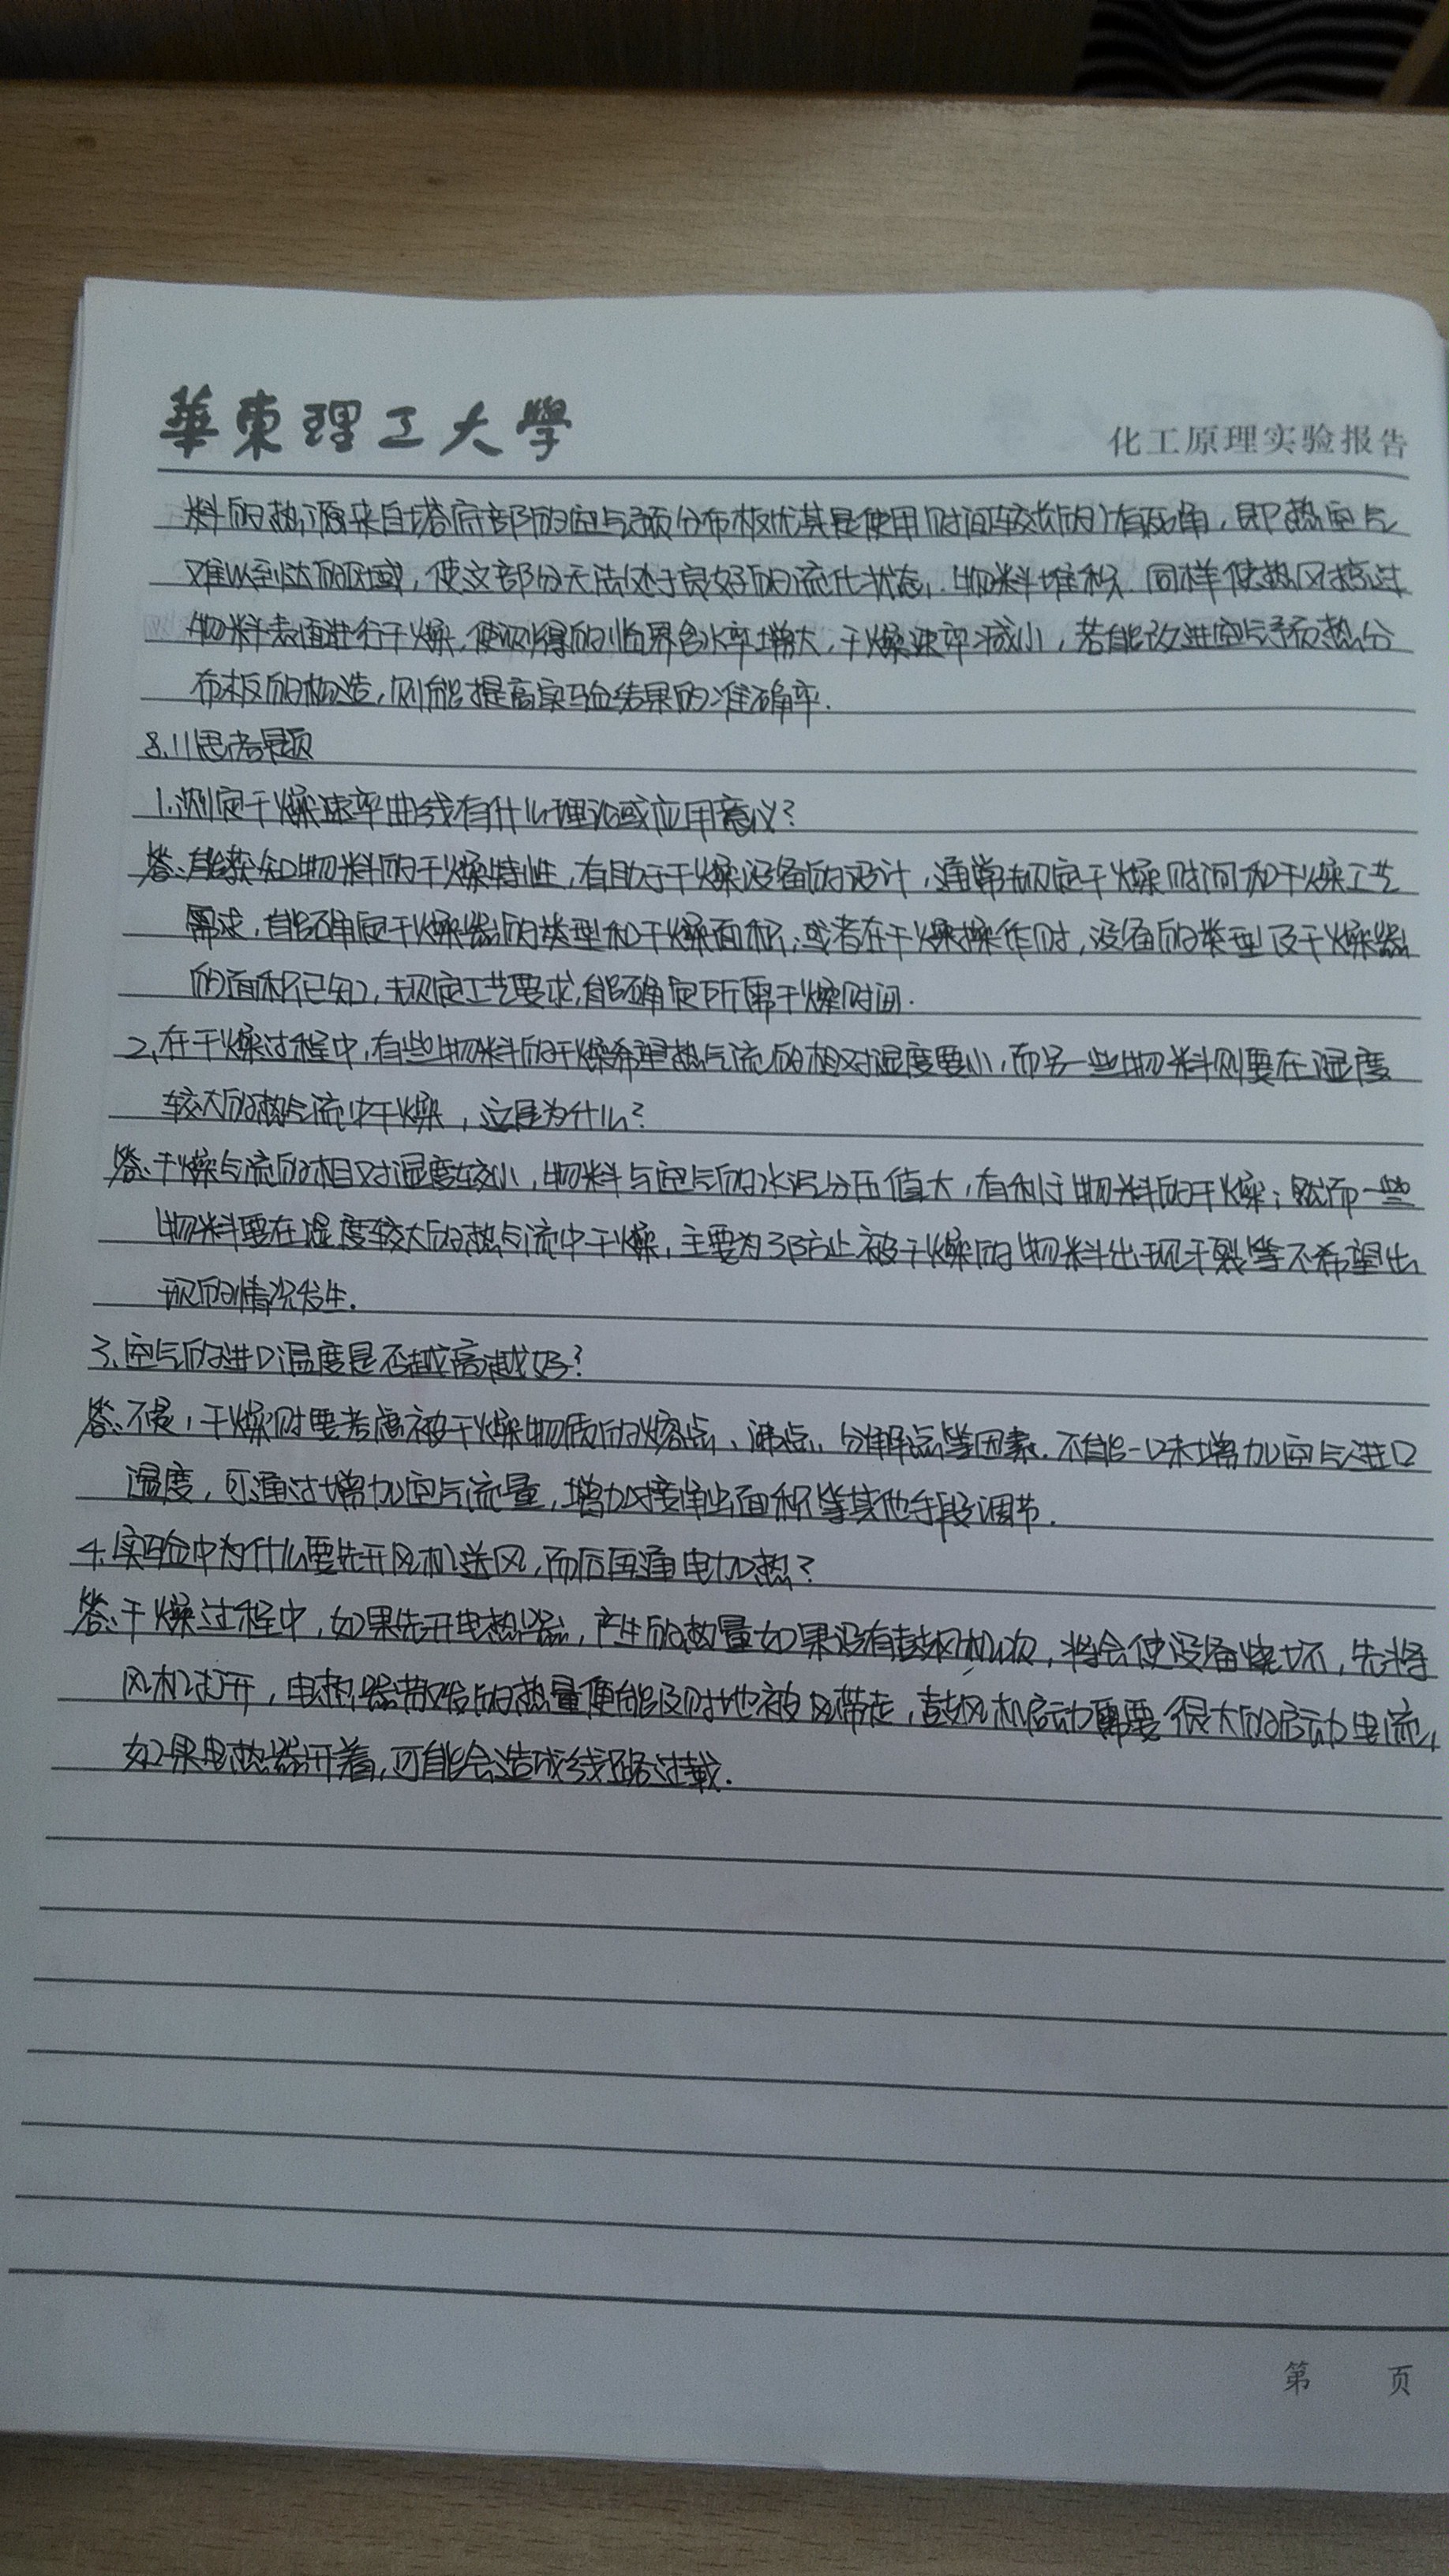 華東理工大學
化工原理实验报告
料的热源来自塔底部的空气预分布板(尤其是使用时间较长的)有死角,即热空气
难以到达的区域,使这部分无法处于良好的流化状态,物料堆积.同样使热风掠过
物料表面进行干燥,使测得的临界含水率增大,干燥速率减小,若能改进空气预热分
布板的构造,则能提高实验结果的准确率.
8.11思考题
1.测定干燥速率曲线有什么理论或应用意义?
答:能获知物料的干燥特性,有助于干燥设备的设计,通常规定干燥时间和干燥工艺
需求,能确定干燥器的类型和干燥面积,或者在干燥操作时,设备的类型及干燥器
的面积已知,规定工艺要求,能确定所需干燥时间.
2.在干燥过程中,有些物料的干燥希望热气流的相对湿度要小,而另一些物料则要在湿度
较大的热气流中干燥,这是为什么?
答:干燥气流的相对湿度较小,物料与空气的水汽分压值大,有利于物料的干燥;然而一些
物料要在湿度较大的热气流中干燥,主要为了防止被干燥的物料出现干裂等不希望出
现的情况发生.
3.空气的进口温度是否越高越好?
答:不是,干燥时要考虑被干燥物质的熔点、沸点、分解点等因素.不能一味增加空气进口
温度,可通过增加空气流量,增加接触面积等其他手段调节.
4.实验中为什么要先开风机送风,而后再通电加热?
答:干燥过程中,如果先开电热器,产生的热量如果没有鼓风机吹,将会使设备烧坏,先将
风机打开,电热器散发的热量便能及时地被风带走,鼓风机启动需要很大的启动电流,
如果电热器开着,可能会造成线路过载.
第 页